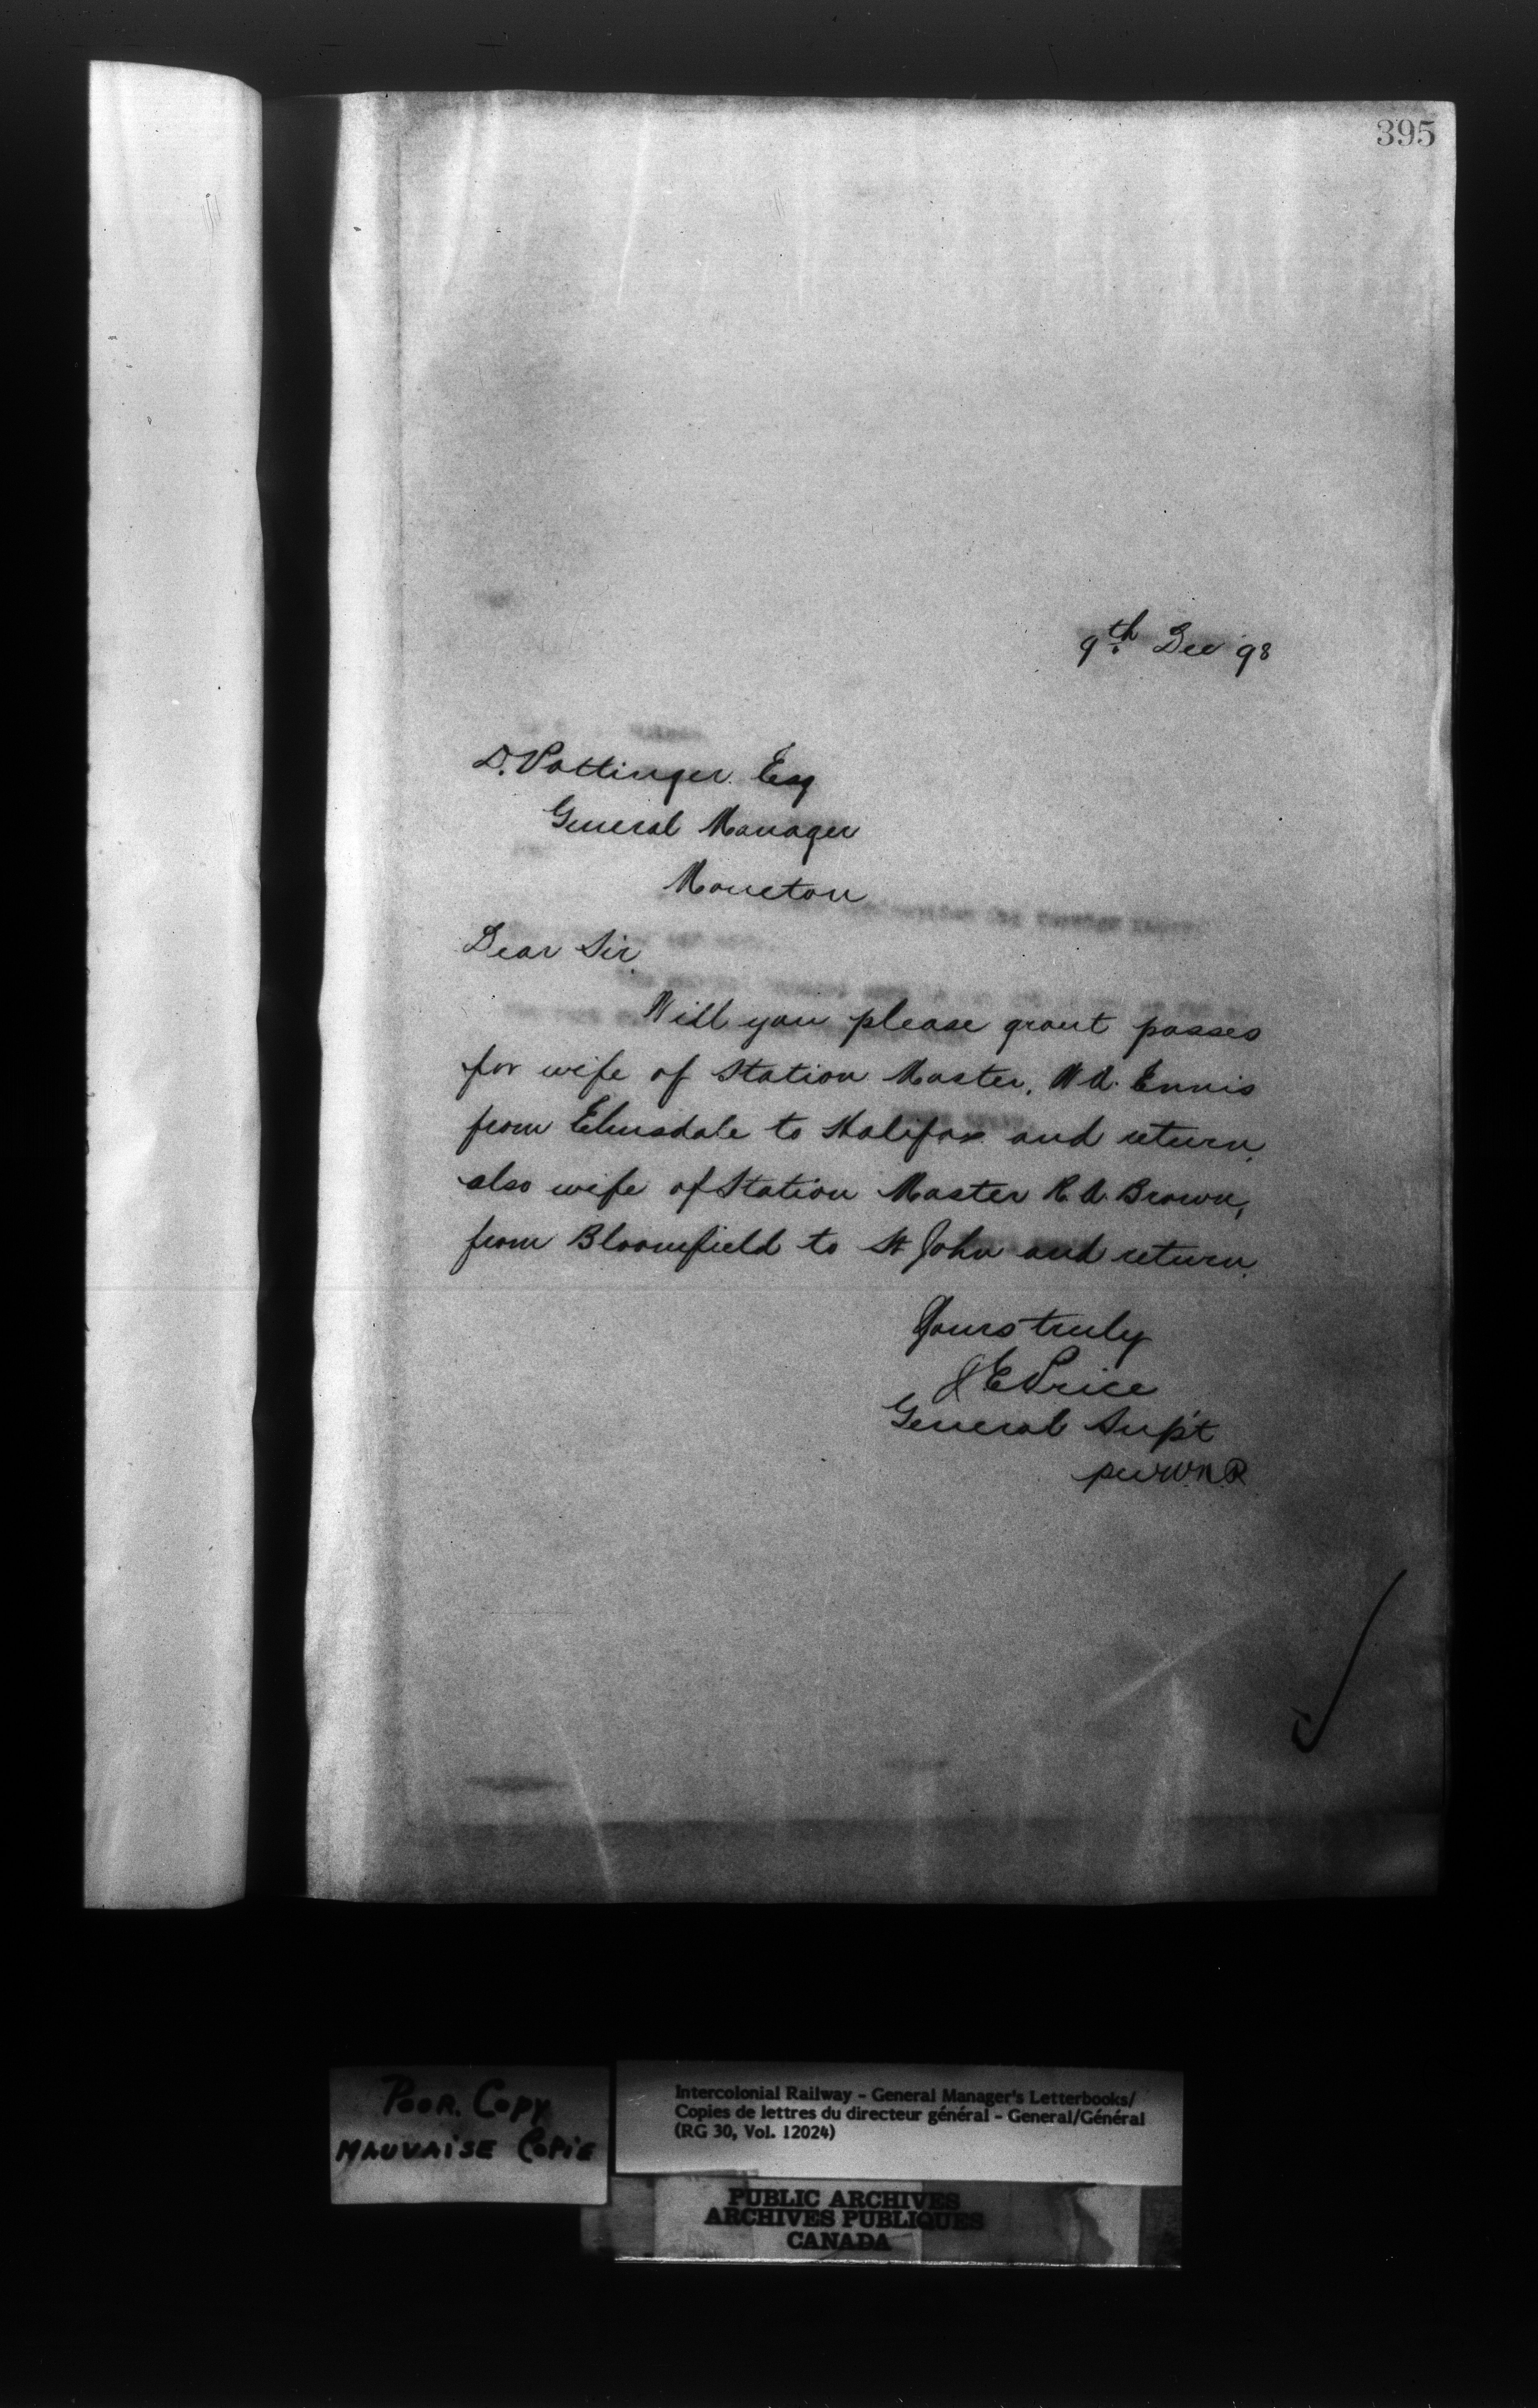 395
9th Dec 98
D. Pottinger Esq
General Manager
Moncton
Dear Sir
Will you please grant passes
for wife of Station Master, W A. Ennis
from Elmsdale to Halifax and return.
also wife of Station Master R. A. Brown,
from Bloomfield to St John and return.
Yours truly
J E Price
General Sup't
per
POOR. COPY
MAUVAISE COPIE
Intercolonial Railway - General Manager's Letterbooks/
Copies de lettres du directeur général - General/Général
(RG 30, Vol. 12024)
PUBLIC ARCHIVES
ARCHIVES PUBLIQUES
CANADA